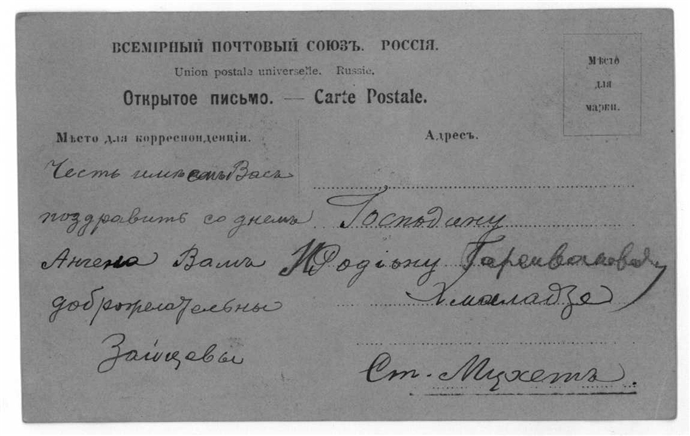 ВСЕМІРНЫЙ ПОЧТОВЫЙ СОЮЗЪ. РОССІЯ.
Union postale universelle. Russie.
Открытое письмо. — Carte Postale.
Мѣсто
для
марки.
Мѣсто для корреспонденціи.
Адресъ.
Честь имѣемъ Васъ
поздравить со днемъ
Ангела Вамъ
доброжелательны
Зайцевы
Господину
Родіону
Хмаладзе
Ст. Мцхетъ.